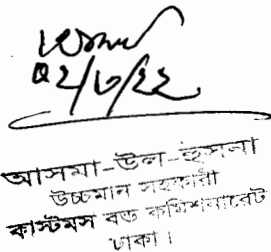 ০২/৩/২২
আসমা-উল-হুসনা
উচ্চমান সহকারী
কাস্টমস বন্ড কমিশনারেট
ঢাকা।